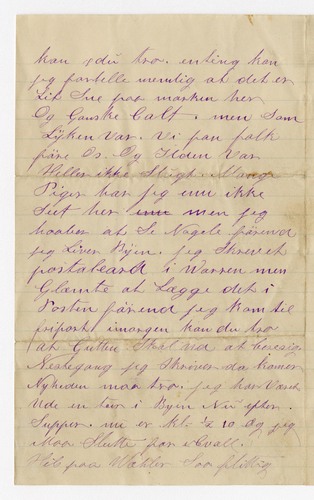 kan du tro. enting kan
jeg fortelle nemlig at det er
Lit Sne paa marken her
Og Ganske Calt. men som
Lykken var. vi fan folk
före Os. Og Ilden var
Heller ikke Mang
Piger har jeg enu ikke
Seet her men jeg
haaber at Se Nogele förend
jeg Liver Byen. jeg Skrev et
postalcard i Warren men
Glæmte at Lægge det i
Posten förend jeg kom til
imorgen kan du tro
at Gutten Skal ud at
Nestegang jeg Skriver da kamer
Nyheden maa tro. jeg har Været
Ude en tur i Byen Nu efter
Supper. nu er kl- ½ 10 Og jeg
Maa Slutte for iCvall.
Hils paa Wahler Saa flittig